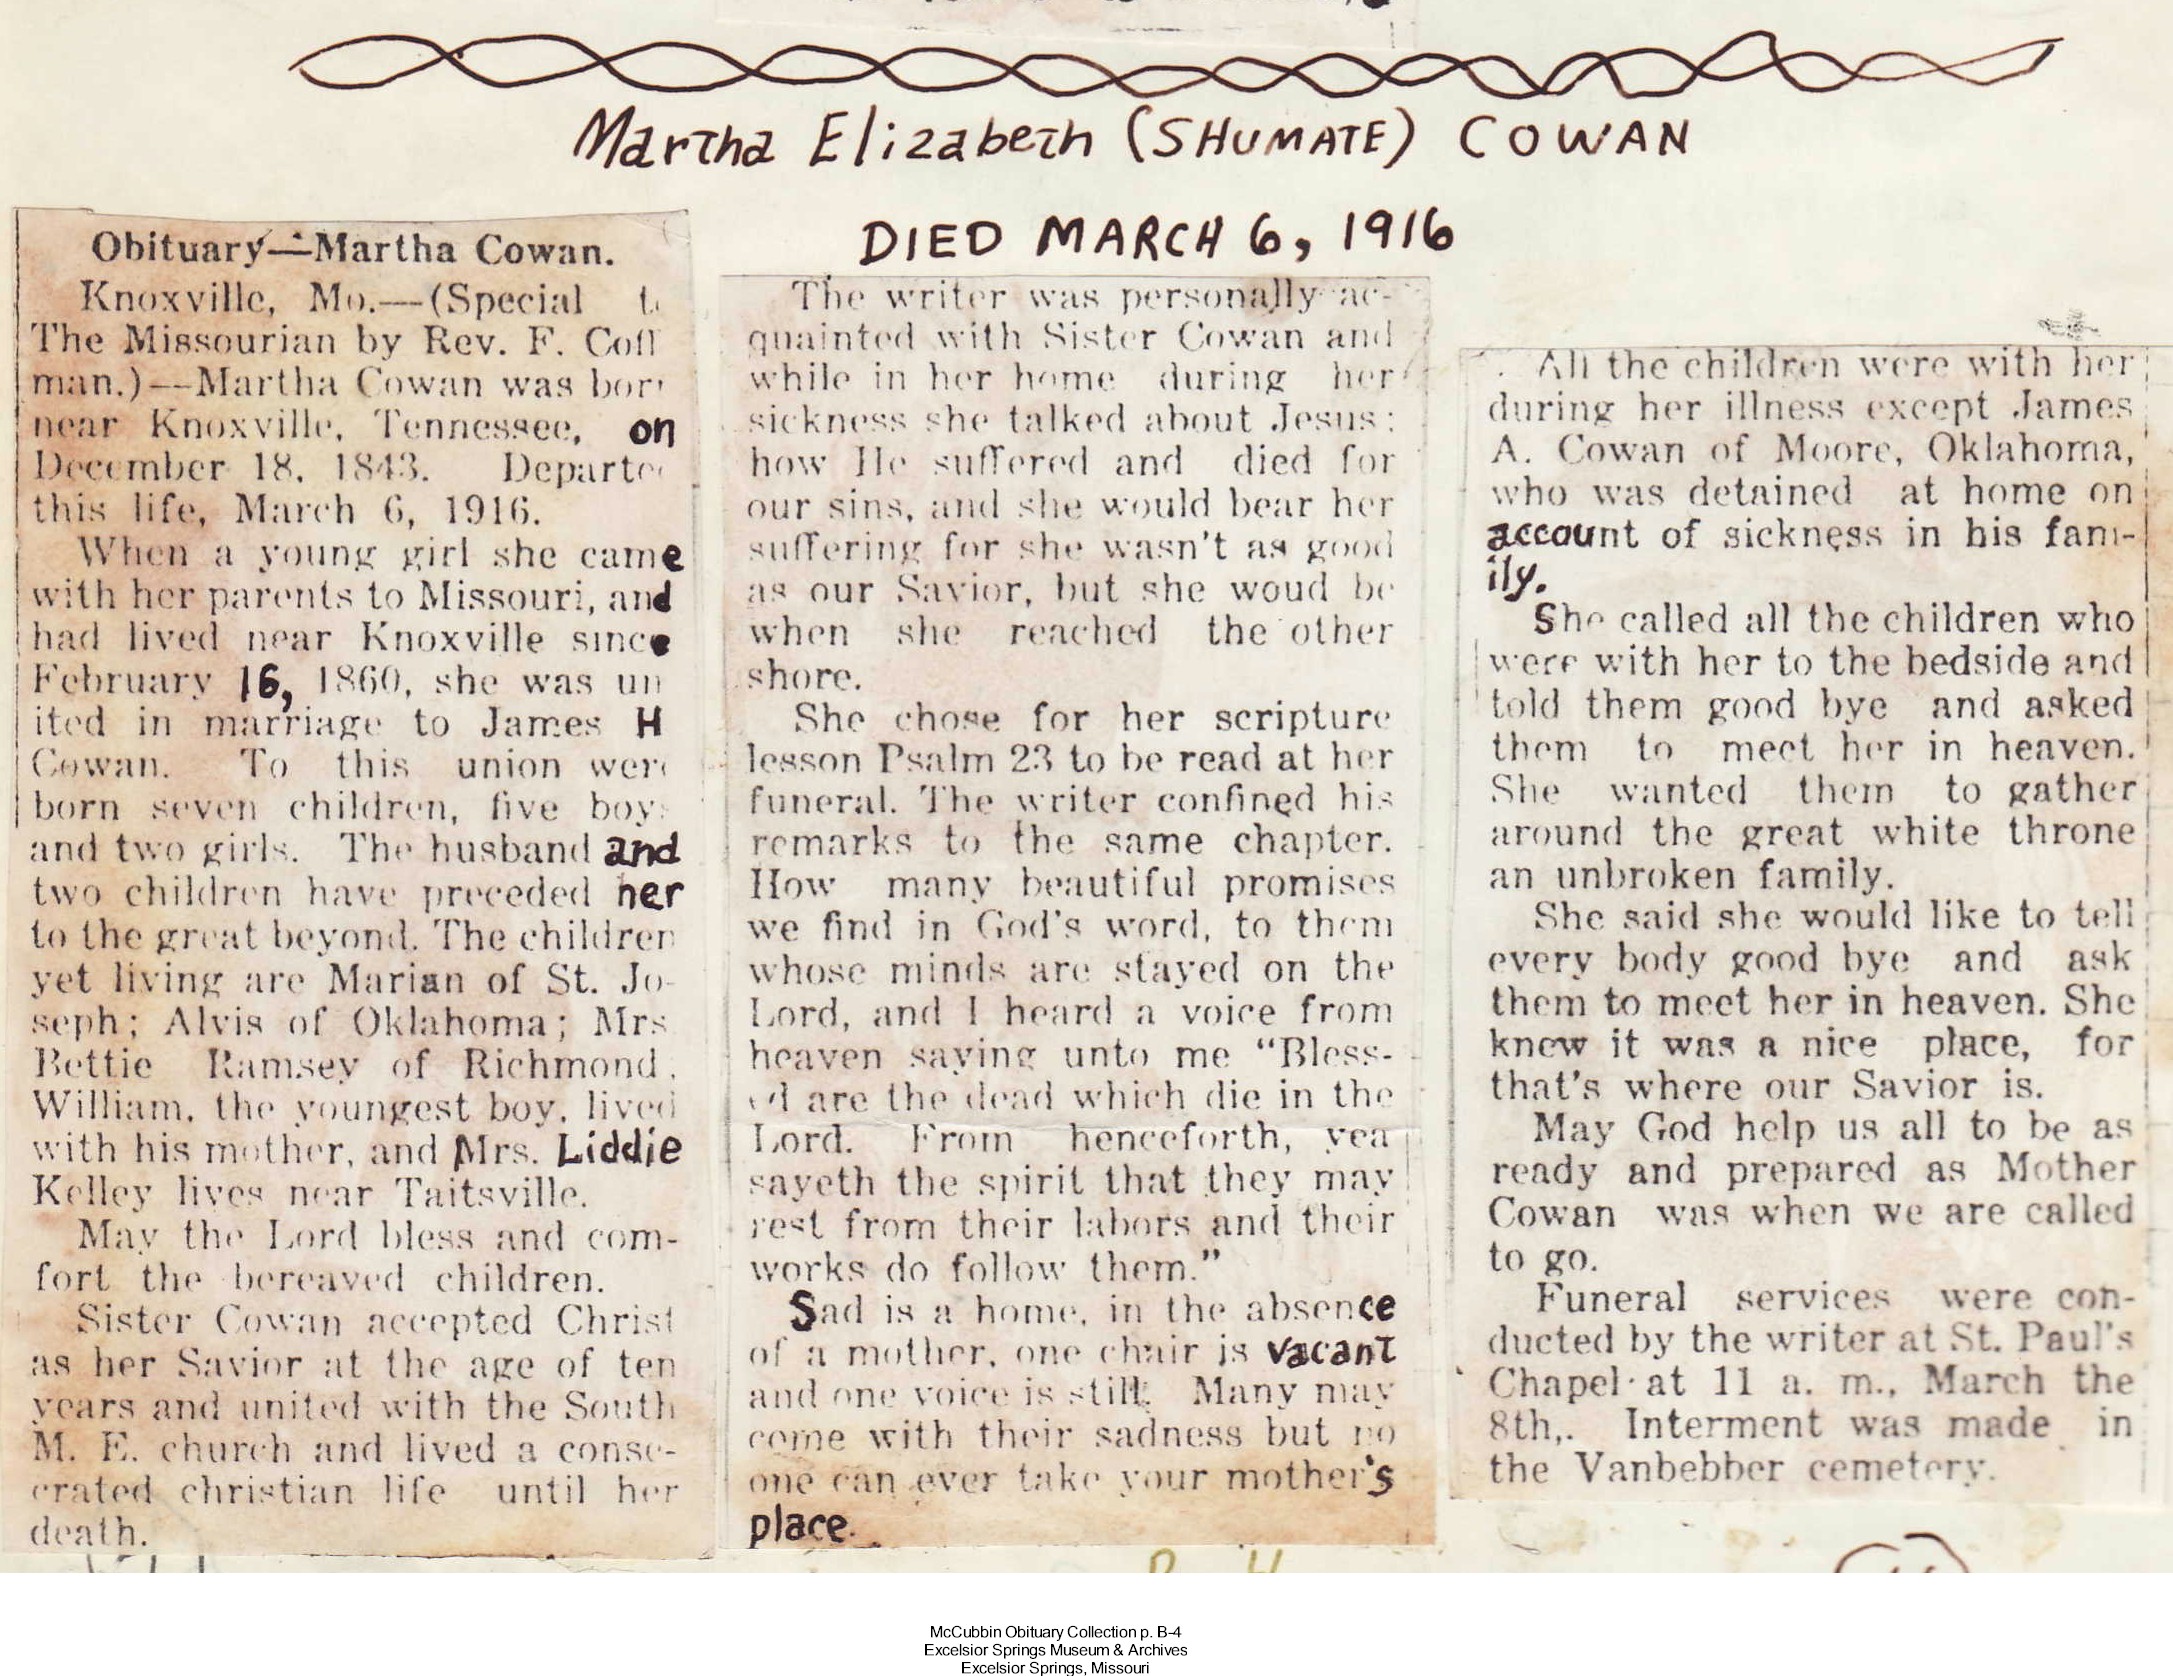 Martha Elizabeth (SHUMATE) COWAN
DIED MARCH 6, 1916
Obituary—Martha Cowan.
Knoxville, Mo.—(Special t
The Missourian by Rev. F. Coff
man.)—Martha Cowan was bor
near Knoxville, Tennessee, on
December 18, 1843. Departe
this life, March 6, 1916.
When a young girl she came
with her parents to Missouri, and
had lived near Knoxville since
February 16, 1860, she was un
ited in marriage to James H
Cowan. To this union were
born seven children, five boys
and two girls. The husband and
two children have preceded her
to the great beyond. The children
yet living are Marian of St. Jo-
seph; Alvis of Oklahoma; Mrs
Bettie Ramsey of Richmond,
William, the youngest boy, lived
with his mother, and Mrs. Liddie
Kelley lives near Taitsville.
May the Lord bless and com-
fort the bereaved children.
Sister Cowan accepted Christ
as her Savior at the age of ten
years and united with the South
M. E. church and lived a conse-
crated christian life until her
death.
The writer was personally ac-
quainted with Sister Cowan and
while in her home during her
sickness she talked about Jesus;
how He suffered and died for
our sins, and she would bear her
suffering for she wasn't as good
as our Savior, but she woud be
when she reached the other
shore.
She chose for her scripture
lesson Psalm 23 to be read at her
funeral. The writer confined his
remarks to the same chapter.
How many beautiful promises
we find in God's word, to them
whose minds are stayed on the
Lord, and I heard a voice from
heaven saying unto me "Bless-
ed are the dead which die in the
Lord. From henceforth, yea
sayeth the spirit that they may
rest from their labors and their
works do follow them."
Sad is a home, in the absence
of a mother, one chair is vacant
and one voice is still. Many may
come with their sadness but no
one can ever take your mother's
place.
All the children were with her
during her illness except James
A. Cowan of Moore, Oklahoma,
who was detained at home on
account of sickness in his fam-
ily.
She called all the children who
were with her to the bedside and
told them good bye and asked
them to meet her in heaven.
She wanted them to gather
around the great white throne
an unbroken family.
She said she would like to tell
every body good bye and ask
them to meet her in heaven. She
knew it was a nice place, for
that's where our Savior is.
May God help us all to be as
ready and prepared as Mother
Cowan was when we are called
to go.
Funeral services were con-
ducted by the writer at St. Paul's
Chapel at 11 a. m., March the
8th,. Interment was made in
the Vanbebber cemetery.
McCubbin Obituary Collection p. B-4
Excelsior Springs Museum & Archives
Excelsior Springs, Missouri